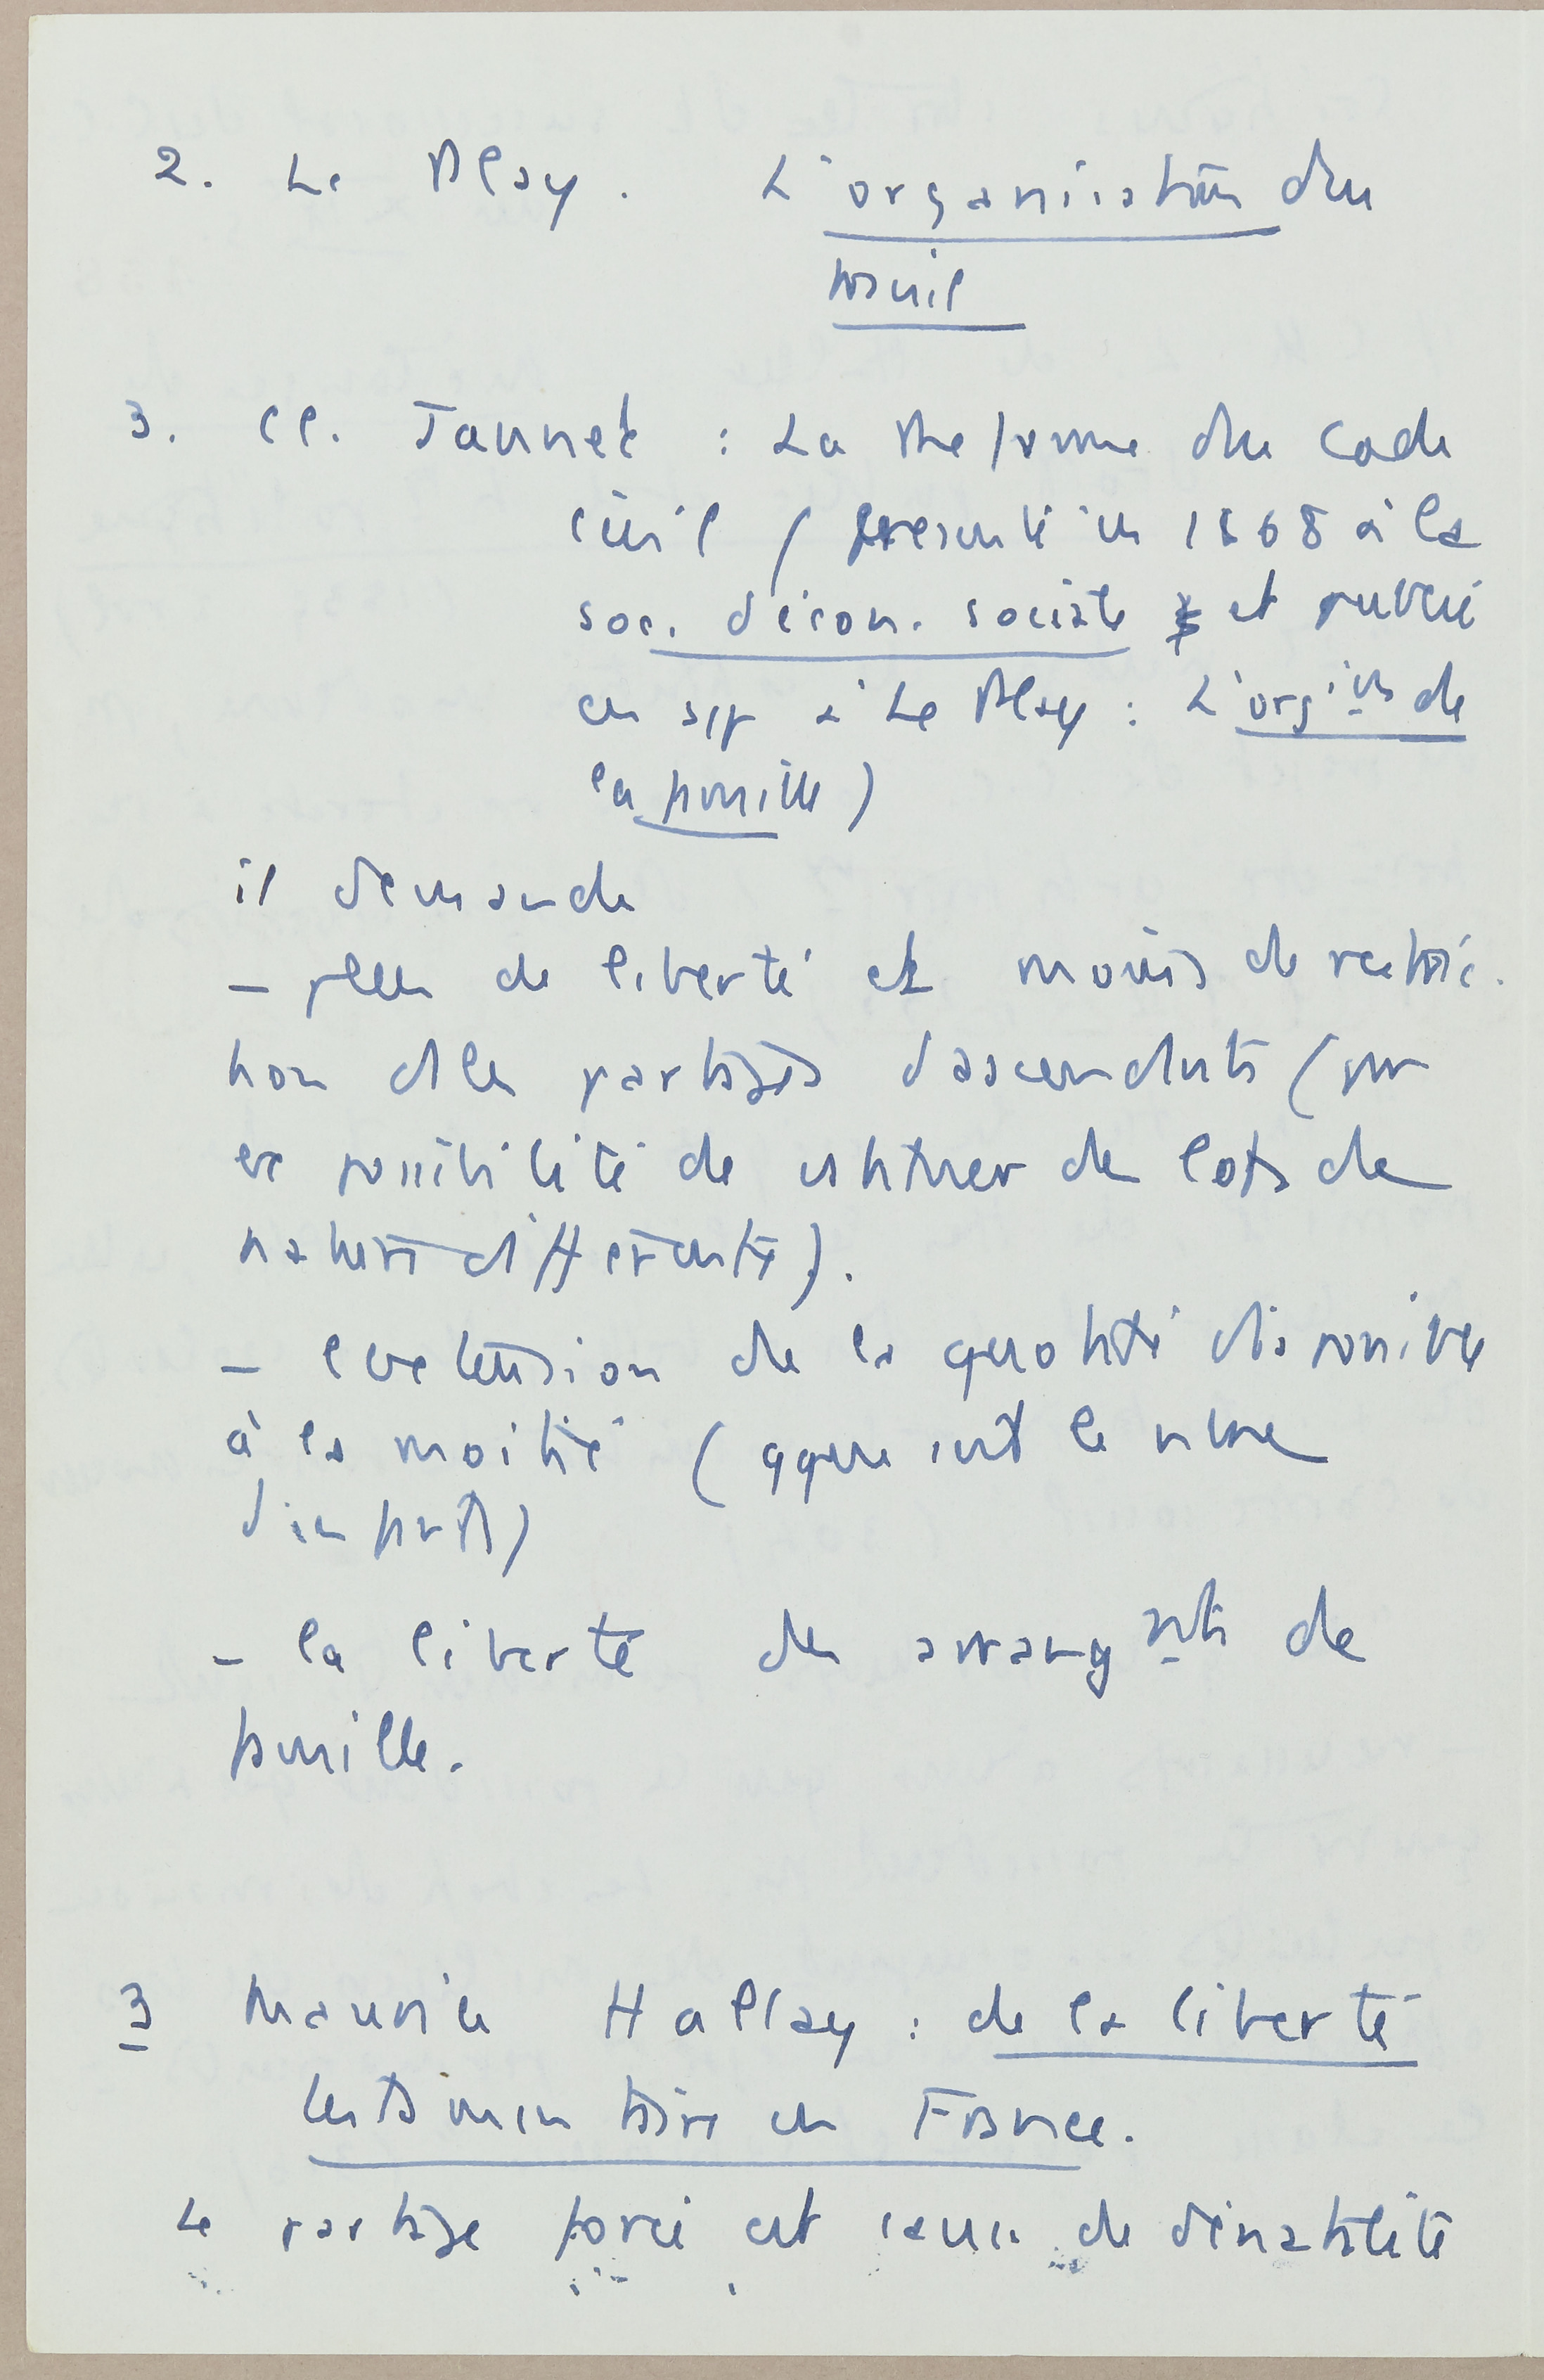 2. Le Play. L'organisation du
travail
3. Cl. Jannet : La Reforme du Code
civil (presenté en 1868 à la
soc. d'écon. sociale et publié
en app à Le Play : L'org.ion de
la famille)
il demande
- plus de liberté et moins de restric.
tion ds les partages d'ascendants (par
ex possibilité de constituer des lots de
natures différentes).
- extension de la quotité disponible
à la moitié (quel que soit le nbre
d'enfants)
- la liberté des arrangmts de
famille.
3 Maurice Hallay : de la liberté
testamentaire en France.
Le partage forcé est cause de dénatalité